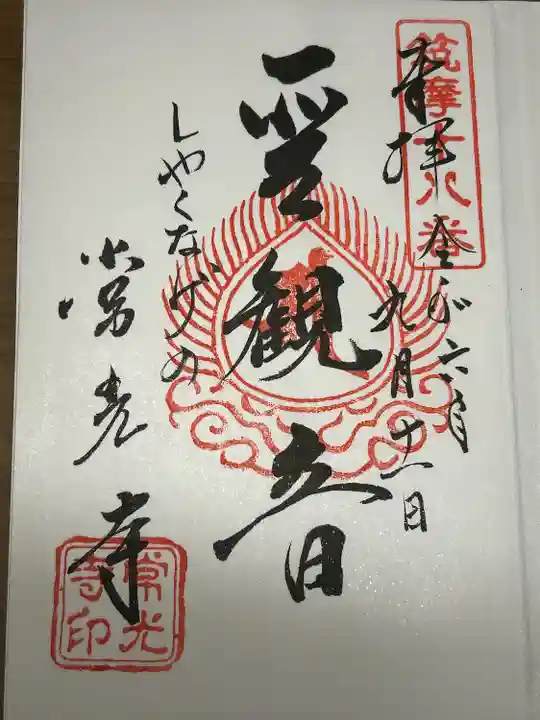 筑摩十八番
奉拝 令和六年
九月十一日
聖観音
しゃくなげの
常光寺
常光寺印